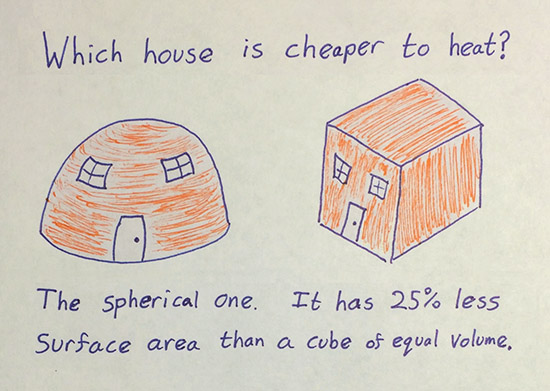 Which house is cheaper to heat?
The spherical one. It has 25% less
Surface area than a cube of equal volume.